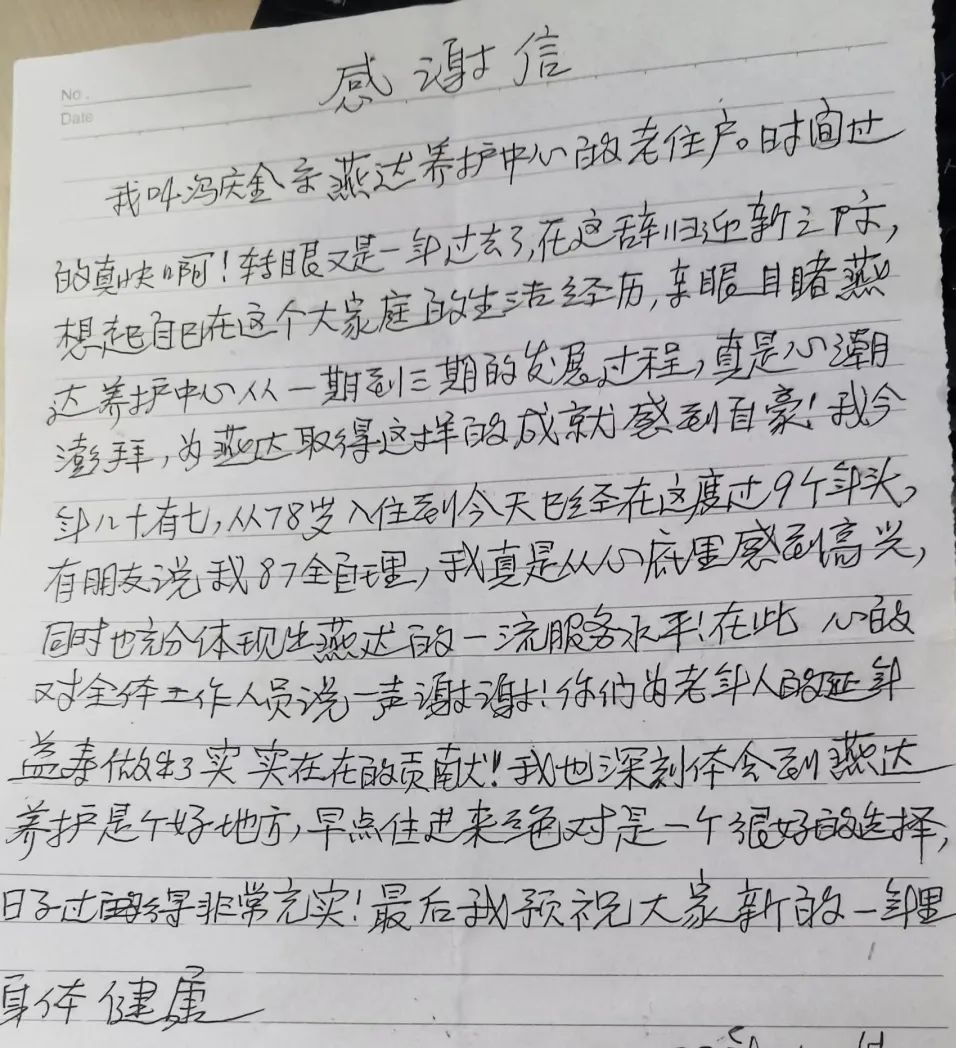 No.
Date
感谢信
我叫冯庆金亲燕达养护中心的老住户。时间过
的真快啊！转眼又是一年过去了,在这辞旧迎新之际，
想起自己在这个大家庭的生活经历,亲眼目睹燕
达养护中心从一期到三期的发展过程，真是心潮
澎拜，为燕达取得这样的成就感到自豪！我今
年八十有七，从78岁入住到今天已经在这度过9个年头，
有朋友说我87全自理，我真是从心底里感到高兴，
同时也充分体现出燕达的一流服务水平！在此 心的
对全体工作人员说一声谢谢！你们为老年人的延年
益寿做出了实实在在的贡献！我也深刻体会到燕达
养护是个好地方，早点住进来绝对是一个很好的选择，
日子过得非常充实！最后我预祝大家新的一年里
身体健康